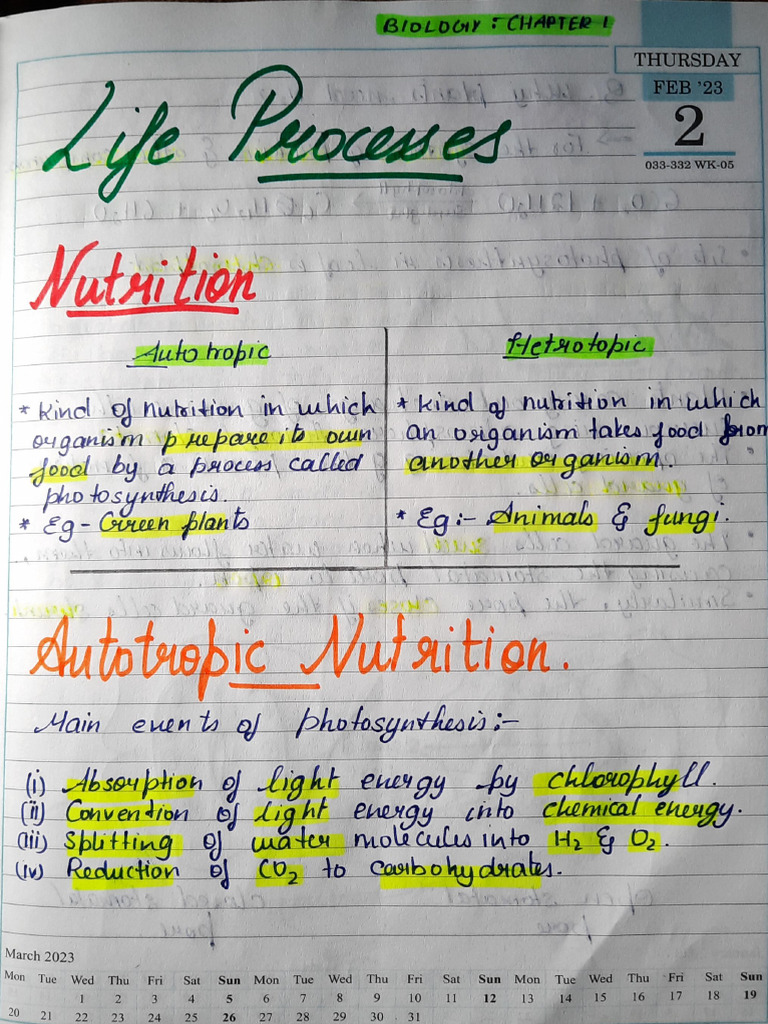 BIOLOGY : CHAPTER 1
THURSDAY
FEB '23
2
033-332 WK-05
Life Processes
Nutrition
Autotropic
* Kind of nutrition in which
organism prepare its own
food by a process called
photosynthesis.
* Eg - Green plants
Hetrotopic
* Kind of nutrition in which
an organism takes food from
another organism.
* Eg :- Animals & fungi.
Autotropic Nutrition.
Main events of photosynthesis :-
(i) Absorption of light energy by chlorophyll.
(ii) Convention of light energy into chemical energy.
(iii) Splitting of water molecules into H₂ & O₂.
(iv) Reduction of CO₂ to carbohydrates.
March 2023
Mon Tue Wed Thu Fri Sat Sun Mon Tue Wed Thu Fri Sat Sun Mon Tue Wed Thu Fri Sat Sun
1 2 3 4 5 6 7 8 9 10 11 12 13 14 15 16 17 18 19
20 21 22 23 24 25 26 27 28 29 30 31